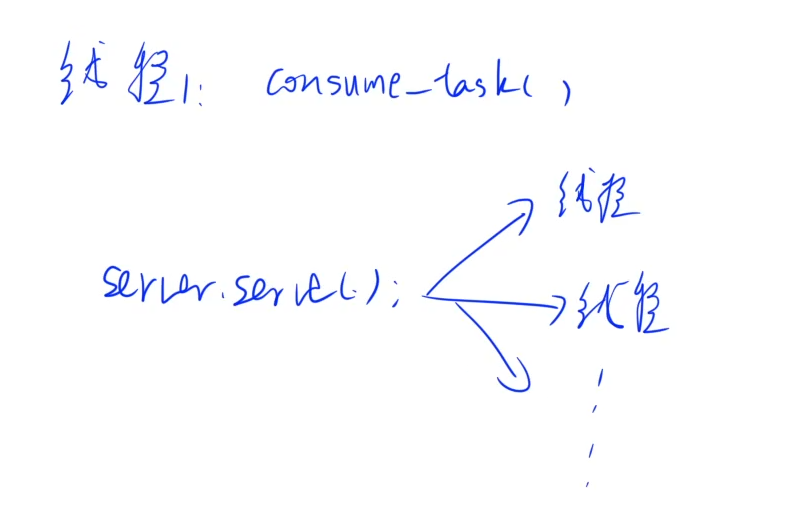 线程1: consume_task()
线程
server.serve();
线程